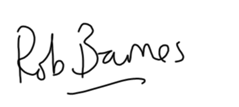 Rob Barnes